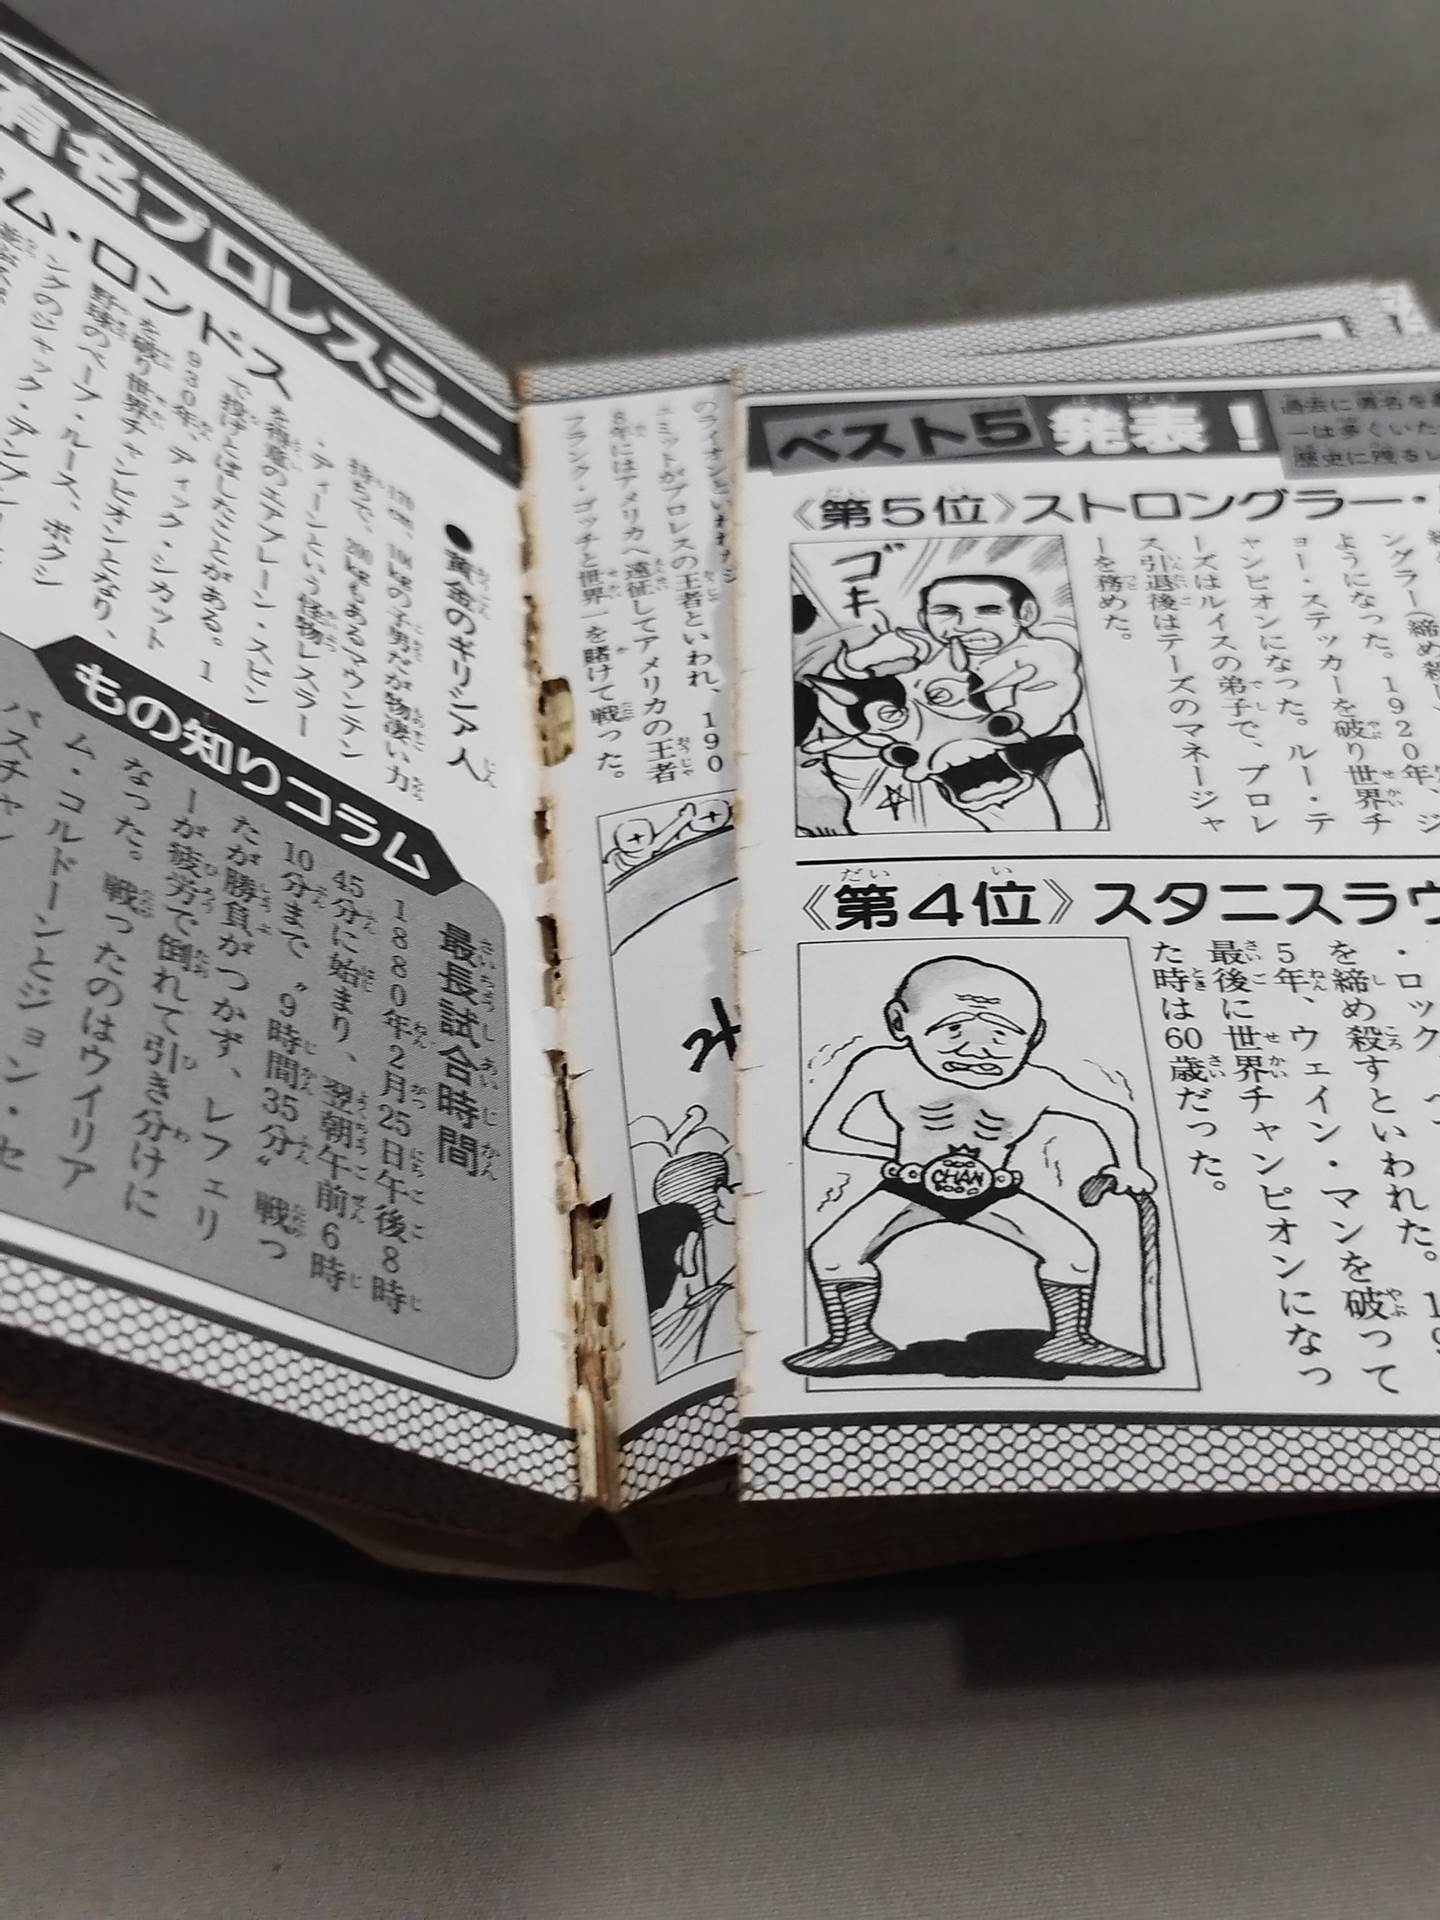 ベスト5発表！
過去に有名を
ーは多くいた
歴史に残るレ
《第5位》ストロングラー・
ングラー（締め殺し）
ようになった。1920年、ジ
ョー・ステッカーを破り世界チ
ャンピオンになった。ルー・テ
ーズはルイスの弟子で、プロレ
ス引退後はテーズのマネージャ
ーを務めた。
ゴキ
《第4位》スタニスラウ
・ロック
を締め殺すといわれた。19
5年、ウェイン・マンを破って
最後に世界チャンピオンになっ
た時は60歳だった。
CHAN
のライオンといわれ
ェミットがプロレスの王者といわれ、190
8年にはアメリカへ遠征してアメリカの王者
フランク・ゴッチと世界一を賭けて戦った。
有名プロレスラー
ム・ロンドス
●黄金のギリシア人
178cm、104kgの子男だが物凄い力
持ちで、200kgもあるマウンテン
・ディーンという怪物レスラー
を得意のエアプレーン・スピン
で投げとばしたことがある。1
930年、ディック・シカット
を破り世界チャンピオンとなり、
野球のベーブ・ルース、ボクシ
ングのジャック・デンプシー
もの知りコラム
最長試合時間
1880年2月25日午後8時
45分に始まり、翌朝午前6時
10分まで〝9時間35分〟戦っ
たが勝負がつかず、レフェリ
ーが疲労で倒れて引き分けに
なった。戦ったのはウイリア
ム・コルドーンとジョン・セ
バスチャン